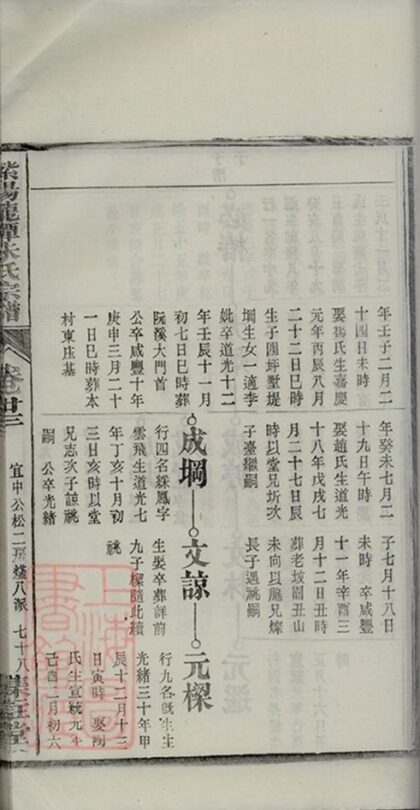 年壬子二月二
十四日未時
娶楊氏生嘉慶
元年丙辰八月
二十二日巳時
生子四坪墅堤
堈生女一適李
妣卒道光十二
年壬辰十一月
初七日巳時葬
阮溪大門首
公卒咸豐十年
庚申三月二十
一日巳時葬本
村東庄基
年癸未七月二
十九日午時
娶趙氏生道光
十八年戊戌七
月二十七日辰
時以堂兄圻次
子臺繼嗣
成堈
行四名綵鳳字
雲飛生道光七
年丁亥十月初
三日亥時以堂
兄志次子諒祧
嗣 公卒光緒
子七月十八日
未時 卒咸豐
十一年辛酉三
月十二日丑時
葬老坟園丑山
未向以胞兄燦
長子遇祧嗣
文諒
生娶卒葬詳前
九子樑隨此續
祧
元樑
行九名旣生生
光緒三十年甲
辰十二月十三
日寅時 娶陶
氏生宣統元年
己酉二月初六
紫陽龍潭朱氏宗譜
卷廿三
宜中公松二房燧八派 七十八